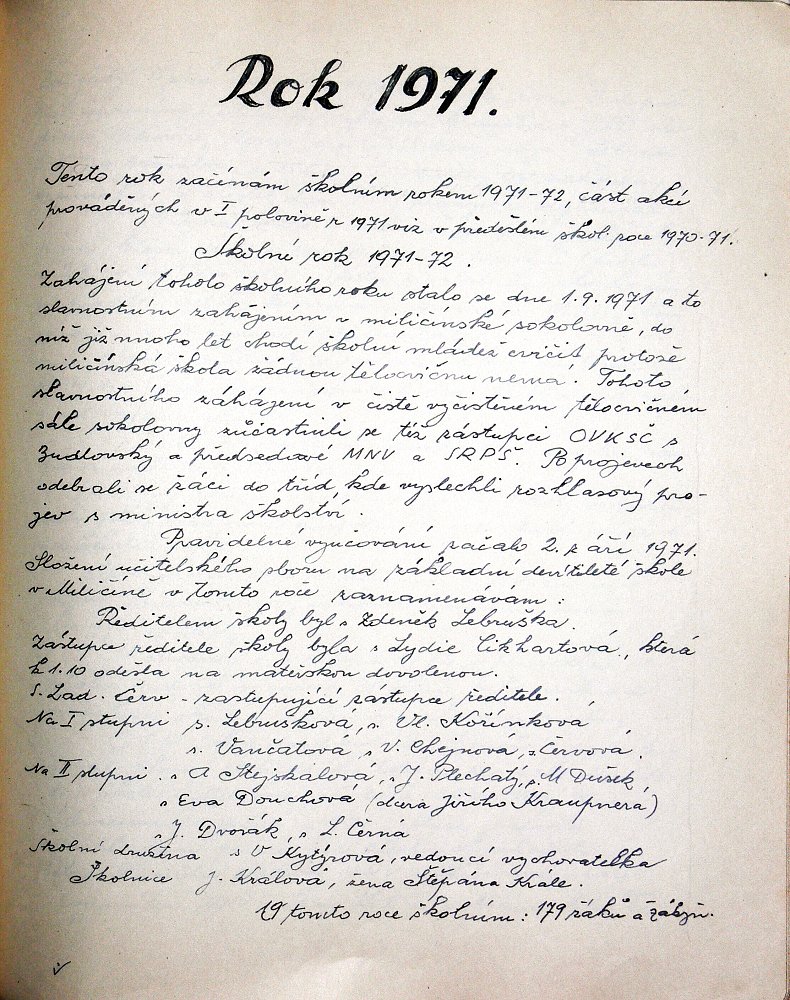 Rok 1971.
Tento rok začínám školním rokem 1971-72, část akcí
prováděných v I polovině r 1971 viz v předešlém škol. roce 1970-71.
Školní rok 1971-72.
Zahájení tohoto školního roku stalo se dne 1.9.1971 a to
slavnostním zahájením v miličínské sokolovně, do
níž již mnoho let chodí školní mládež cvičit protože
miličínská škola žádnou tělocvičnu nemá. Tohoto
slavnostního zahájení v čistě vyčistěném tělocvičném
sále sokolovny zúčastnili se též zástupci OVKSČ s
Zudlovský a předsedové MNV a SRPŠ. Po projevech
odebrali se žáci do tříd, kde vyslechli rozhlasový pro-
jev s ministra školství.
Pravidelné vyučování začalo 2. září 1971.
Složení učitelského sboru na základní devítileté škole
v Miličíně v tomto roce zaznamenávám:
Ředitelem školy byl s Zdeněk Lebruška.
Zástupce ředitele školy byla s Lydie Cikhartová, která
k 1.10 odešla na mateřskou dovolenou.
S. Lad. Červ - zastupující zástupce ředitele.
Na I stupni s. Lebrušková, s. Vl. Kořínková
s. Vančatová, s V. Chejnová, s Červová.
Na II stupni. s A Stejskalová, s J. Plechatý, s M Dušek,
s Eva Douchová (dcera Jiřího Kraupnera)
s J. Dvořák, s L. Černá
Školní družina s V Kytýrová, vedoucí vychovatelka
Školnice J. Králová, žena Štěpána Krále.
V tomto roce školním: 179 žáků a žákyň.